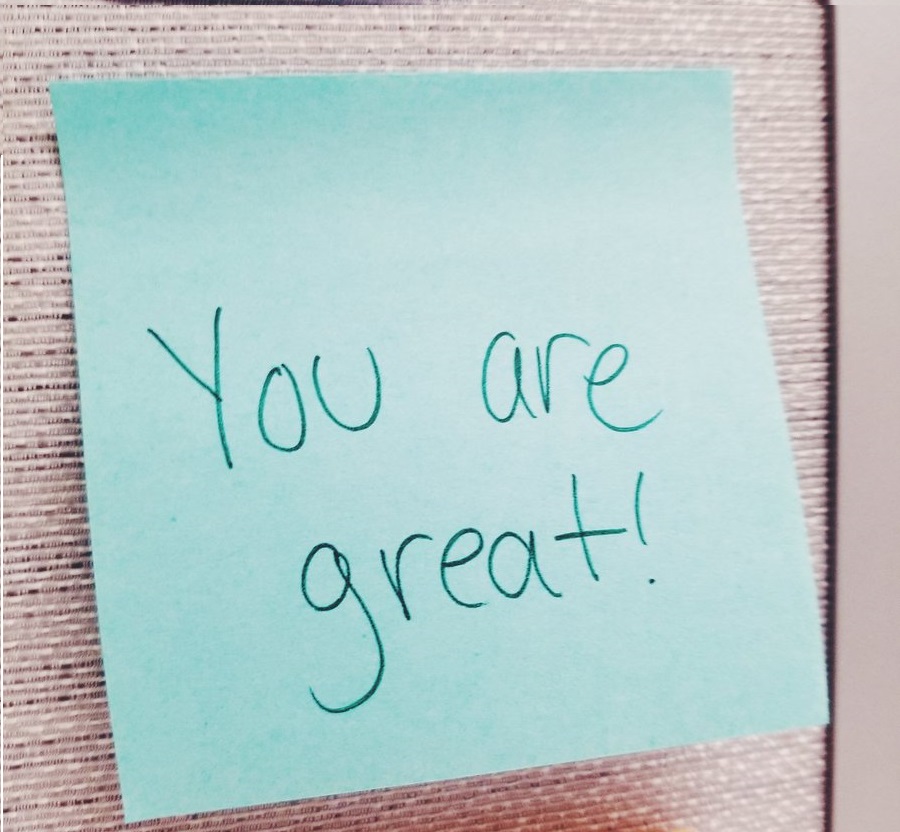 You are
great!